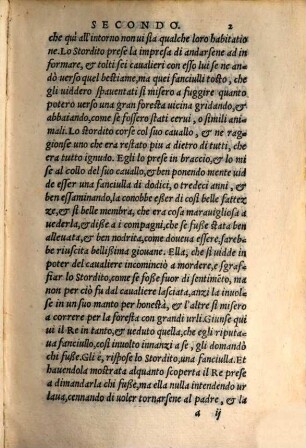 SECONDO. 2
che qui all'intorno non ui sia qualche loro habitatio
ne. Lo Stordito prese la impresa di andarsene ad in
formare, & tolti sei caualieri con esso lui se ne an
dò uerso quel bestiame, ma quei fanciulli tosto, che
gli uiddero spauentati si misero a fuggire quanto
potero uerso una gran foresta uicina gridando, &
abbaiando, come se fossero stati cerui, o simili ani
mali. Lo stordito corse col suo cauallo, & ne rag
gionse uno che era restato piu a dietro di tutti, che
era tutto ignudo. Egli lo prese in braccio, & lo mi
se al collo del suo cauallo, & ben ponendo mente uid
de esser una fanciulla di dodici, o tredeci anni, &
ben essaminando, la conobbe eßer di così belle fattez
ze, & sì belle membra, che era cosa marauigliosa a
uederla, & diße a i compagni, che se fuße stata ben
alleuata, & ben nodrita, come doueua essere, sareb-
be riuscita bellissima giouane. Ella, che si uidde in
poter del caualiere incominciò a mordere, e sgraf-
fiar lo Stordito, come se foße fuor di sentimēto, ma
non per ciò fu dal caualiere lasciata, anzi la inuol-
se in un suo manto per honestà, & l'altre si misero
a correre per la foresta con grandi urli. Giunse qui
ui il Re in tanto, & ueduto quella, che egli riputa-
ua fanciullo, così inuolto innanzi a se, gli domandò
chi fuße. Gli è, rispose lo Stordito, una fanciulla. Et
hauendola mostrata alquanto scoperta il Re prese
a dimandarla chi fuße, ma ella nulla intendendo ur
laua, cennando di uoler tornarsene al padre, & la
a ij